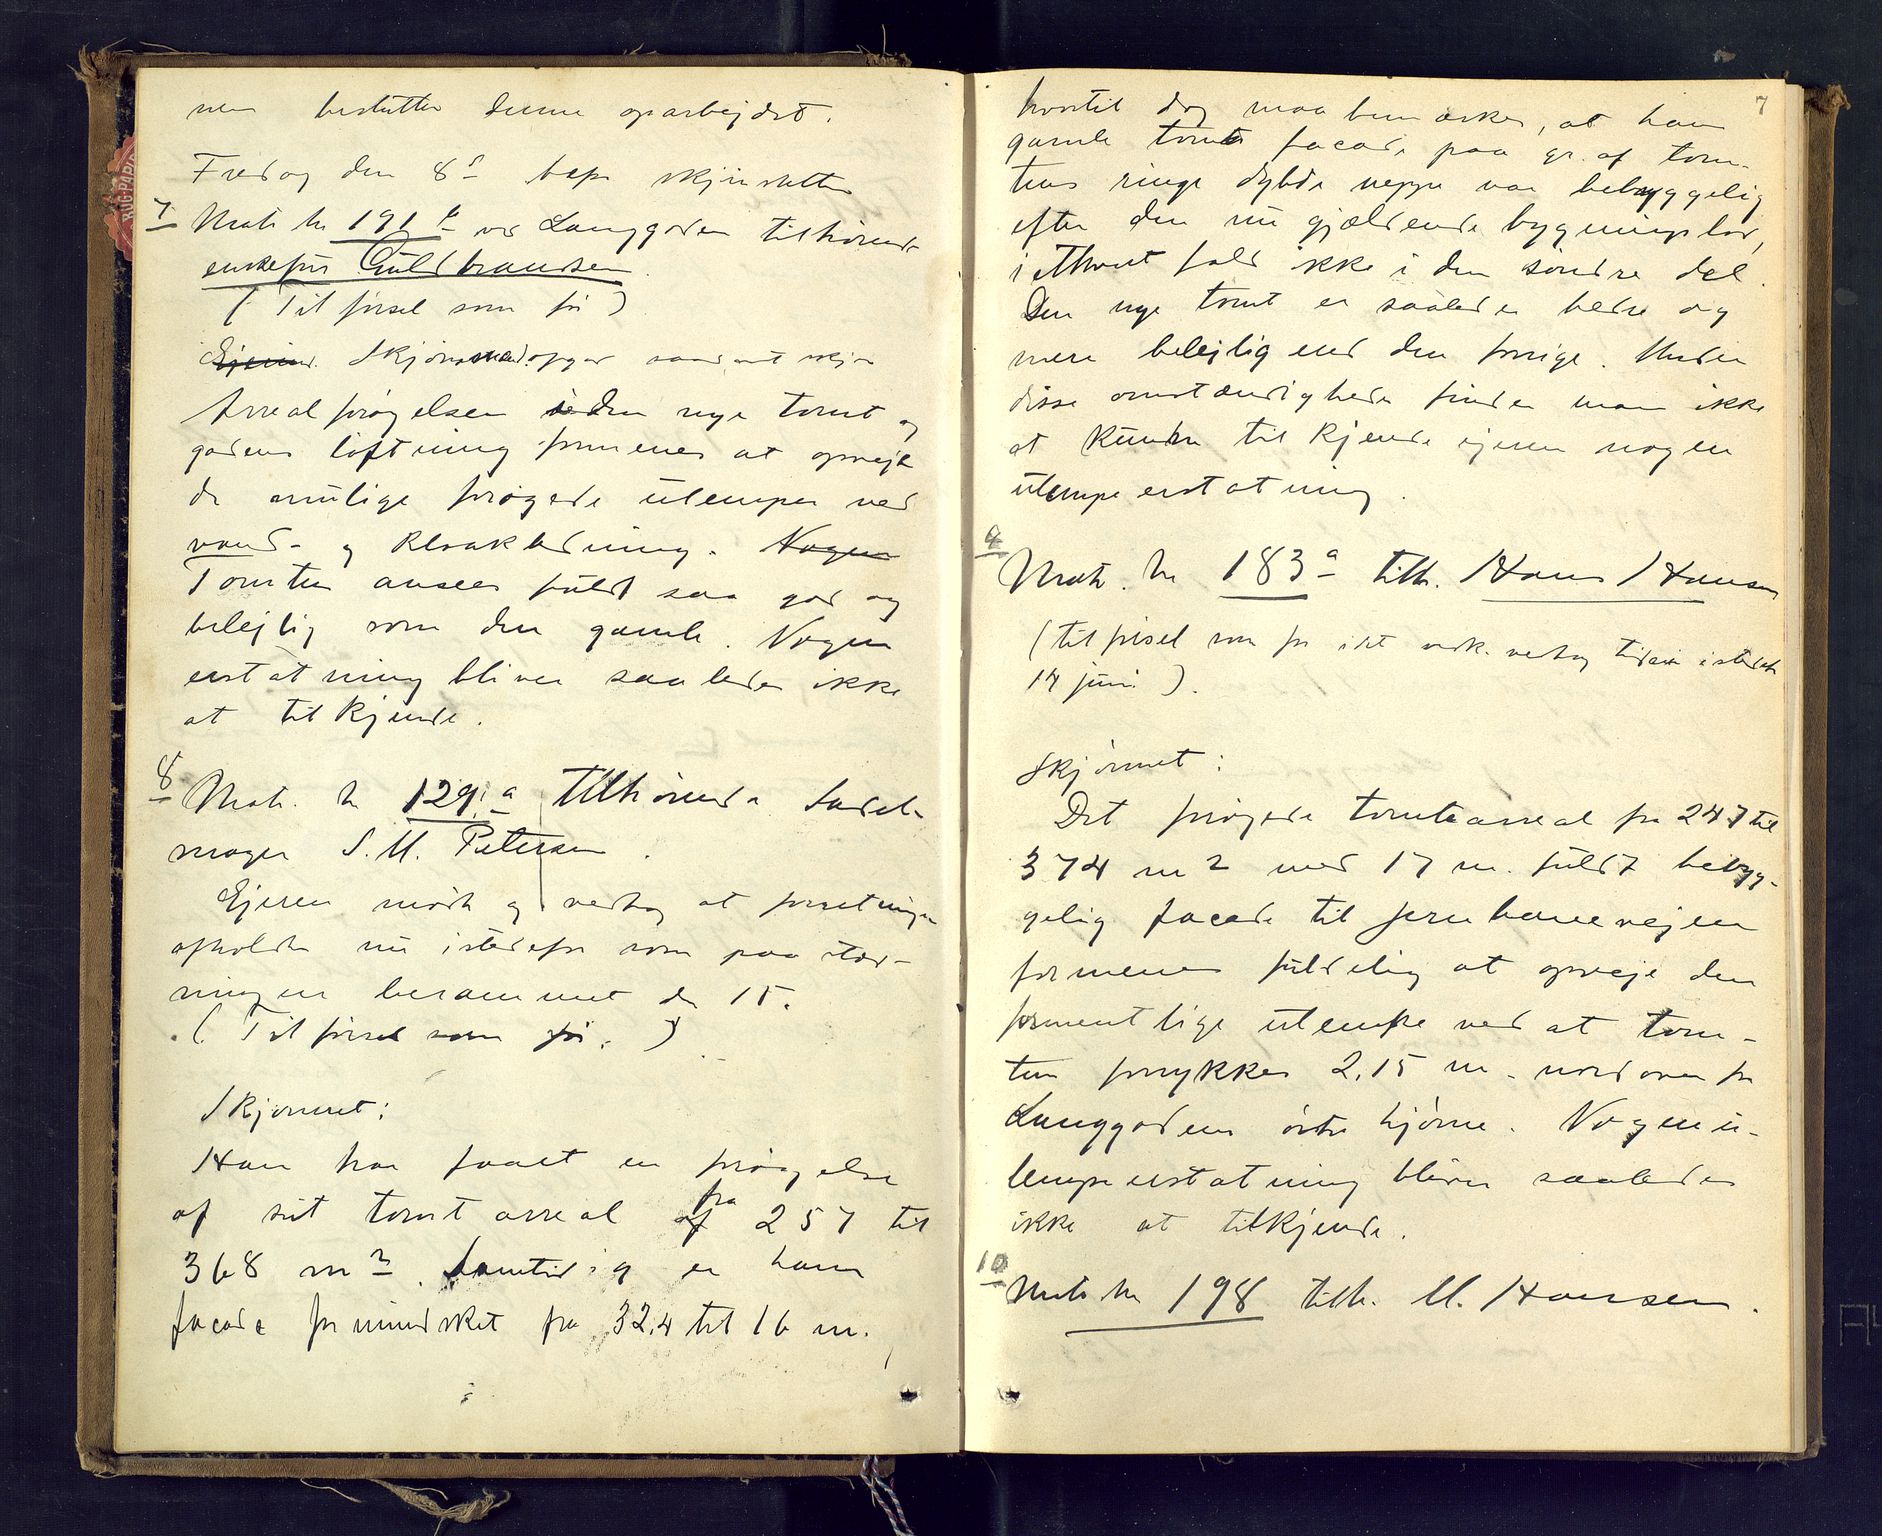 men beslutter denne oparbejdet.
Fredag den 8de skjønsretten
7 Matr. nr 191 b ved Langgaden tilhørende
enkefru Guldbrandsen.
(Tilførsel som før)
Ejeren. Skjønsmænd. afgav saadant skjøn
Arealforøgelsen i den nye tomt og
gadens løftning formenes at opveje
de mulige forøgede ulemper ved
vand- og kloakledning. Nogen
Tomten ansees fuldt saa god og
belejlig som den gamle. Nogen
erstatning bliver saaledes ikke
at tilkjende.
8 Matr. nr 129 a tilhørende Sadel-
mager S. M. Petersen.
Ejeren mødte og vedtog at forretningen
afholdes nu istedefor som paa stev-
ningen berammet d. 15.
(Tilførsel som før.)
Skjønnet:
Han har faaet en forøgelse
af sit tomtareal af fra 257 til
368 m2. Samtidig er hans
facade formindsket fra 32,4 til 16 m.,
7
hvortil dog maa bemærkes, at hans
gamle tomts facade paa gr. af tom-
tens ringe dybde neppe var bebyggelig
efter den nu gjældende bygningslov,
i ethvert fald ikke i den søndre del.
Den nye tomt er saaledes bedre og
mere belejlig end den forrige. Under
disse omstændigheder finder man ikke
at kunne tilkjende ejeren nogen
ulempeerstatning.
9
Matr. nr 183 a tilh. Hans Hansen
(tilførsel som før idet vedk. vedtog tiden istedetfor
14 juni).
Skjønnet:
Det forøgede tomteareal fra 247 til
374 m2 med 17 m. fuldt bebyg-
gelig facade til Jernbanevejen
formenes fuldelig at opveje den
formentlige ulempe ved at tom-
ten forrykkes 2,15 m. nordover fra
Langgadens østre hjørne. Nogen u-
lempeerstatning bliver saaledes
ikke at tilkjende.
10
Matr. nr 198 tilh. M. Hansen.